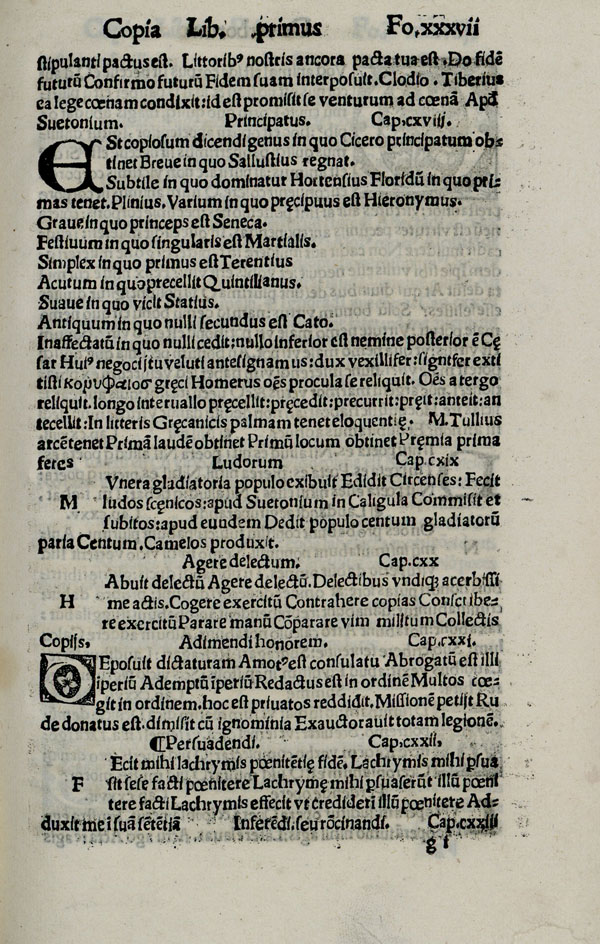 Copia Lib. primus Fo.xxxvii
stipulanti pactus est. Littoribꝰ nostris ancora pacta tua est. Do fidē
futurū Confirmo futurū Fidem suam interposuit. Clodio. Tiberius
ea lege cœnam condixit: id est promisit se venturum ad cœnā Apđ
Suetonium. Principatus. Cap.cxviij.
ESt copiosum dicendi genus in quo Cicero principatum ob-
tinet Breue in quo Sallustius regnat.
Subtile in quo dominatur Hortensius Floridū in quo pri-
mas tenet. Plinius. Varium in quo pręcipuus est Hieronymus.
Graue in quo princeps est Seneca.
Festiuum in quo singularis est Martialis.
Simplex in quo primus est Terentius
Acutum in quo precellit Quintilianus.
Suaue in quo vicit Statius.
Antiquum in quo nulli secundus est Cato.
Inaffectatū in quo nulli cedit: nullo inferior est nemine posterior ē Cę
sar Huiꝰ negocij tu veluti antesignamus: dux vexillifer: signifer exti
tisti κορυφαιοσ gręci Homerus oēs procul a se reliquit. Oēs a tergo
reliquit. longo interuallo pręcellit: pręcedit: precurrit: pręit: anteit: an
tecellit: In litteris Gręcanicis palmam tenet eloquentię. M. Tullius
arcē tenet Primā laudē obtinet Primū locum obtinet Pręmia prima
feres Ludorum Cap.cxix
Vnera gladiatoria populo exibuit Edidit Circenses: Fecit
M ludos scęnicos: apud Suetonium in Caligula Commisit et
subitos: apud eundem Dedit populo centum gladiatorū
paria Centum. Camelos produxit.
Agere delectum. Cap.cxx
Abuit delectū Agere delectū. Delectibus vndiqꝫ acerbissi
H me actis. Cogere exercitū Contrahere copias Conscribe-
re exercitū Parare manū Cōparare vim militum Collectis
Copijs, Adimendi honorem. Cap.cxxi.
DEposuit dictaturam Amotꝰ est consulatu Abrogatū est illi
īperiū Ademptū īperiū Redactus est in ordinē Multos cœ-
git in ordinem. hoc est priuatos reddidit. Missionē petijt Ru
de donatus est. dimisit cū ignominia Exauctorauit totam legionē.
¶Persuadendi. Cap.cxxii,
Ecit mihi lachrymis pœnitētię fidē. Lachrymis mihi ꝑsua
F sit sese facti pœnitere Lachrymę mihi ꝑsuaserūt illū pœni
tere facti Lachrymis effecit vt crediderī illū pœnitere Ad-
duxit me ī suā sētētiā Inferēdi. seu rōcinandi. Cap.cxxiii
g i